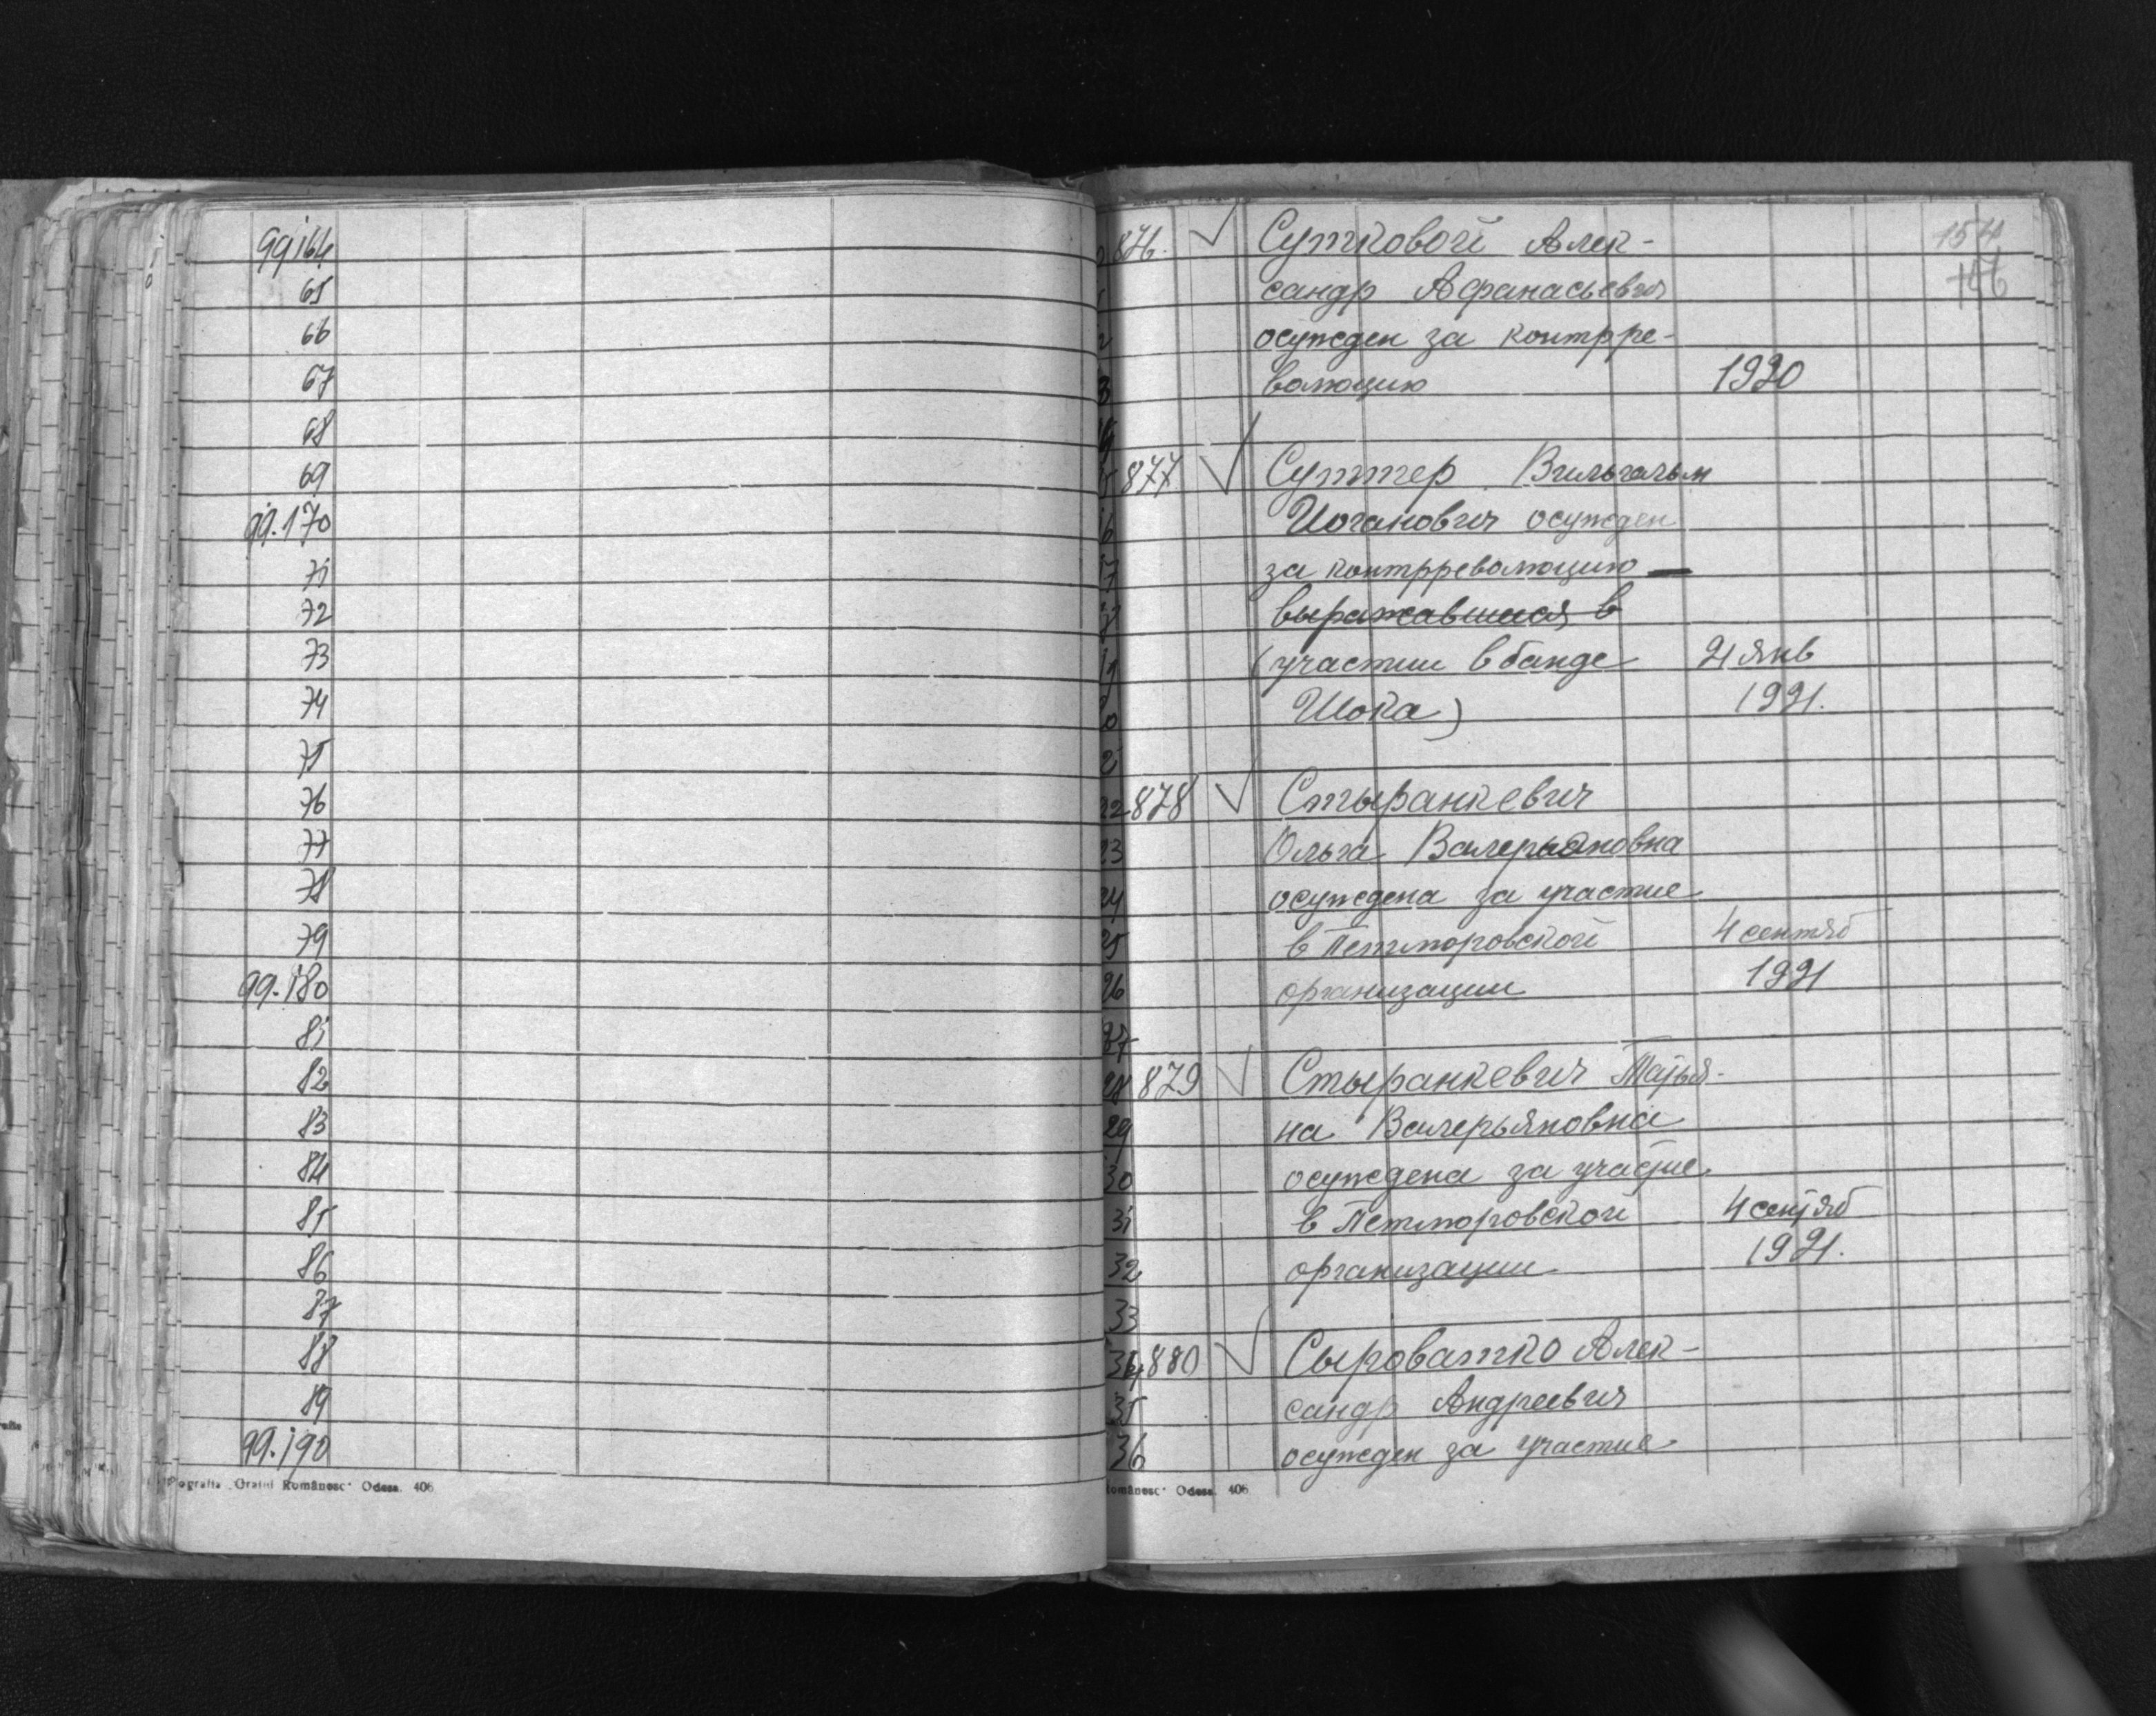 99164
65
66
67
68
69
99.170
71
72
73
74
75
76
77
78
79
99.180
81
82
83
84
85
86
87
88
89
99.190
Românesc" Odesa. 406
154
876. Сутковой Алек-
сандр Афанасьевич
осужден за контрре-
волюцию 1920
877 Суттер Вильгельм
Иоганович осужден
за контрреволюцию
выражавшися в
(участии в банде 21 янв
Шока) 1921.
22 878 Стыранкевич
23 Ольга Валерьяновна
24 осуждена за участие
25 в Петлюровской 4 сентяб
26 организации 1921
27
28 879 Стыранкевич Татья-
29 на Валерьяновна
30 осуждена за участие
31 в Петлюровской 4 сентяб
32 организации 1921.
33
34 880 Сыроватко Алек-
35 сандр Андреевич
36 осужден за участие
Românesc" Odesa. 406